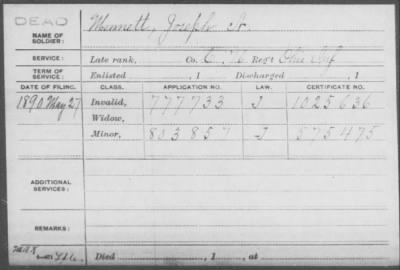 DEAD
NAME OF SOLDIER: Mennett, Joseph A.
SERVICE: Late rank, Co. Reg't Ohio Inf
TERM OF SERVICE: Enlisted , 1 Discharged , 1
DATE OF FILING. CLASS. APPLICATION NO. LAW. CERTIFICATE NO.
1890 May 27 Invalid, 777733 J 1025636
Widow,
Minor, 803857 J 575475
ADDITIONAL SERVICES:
REMARKS:
Died , 1 , at